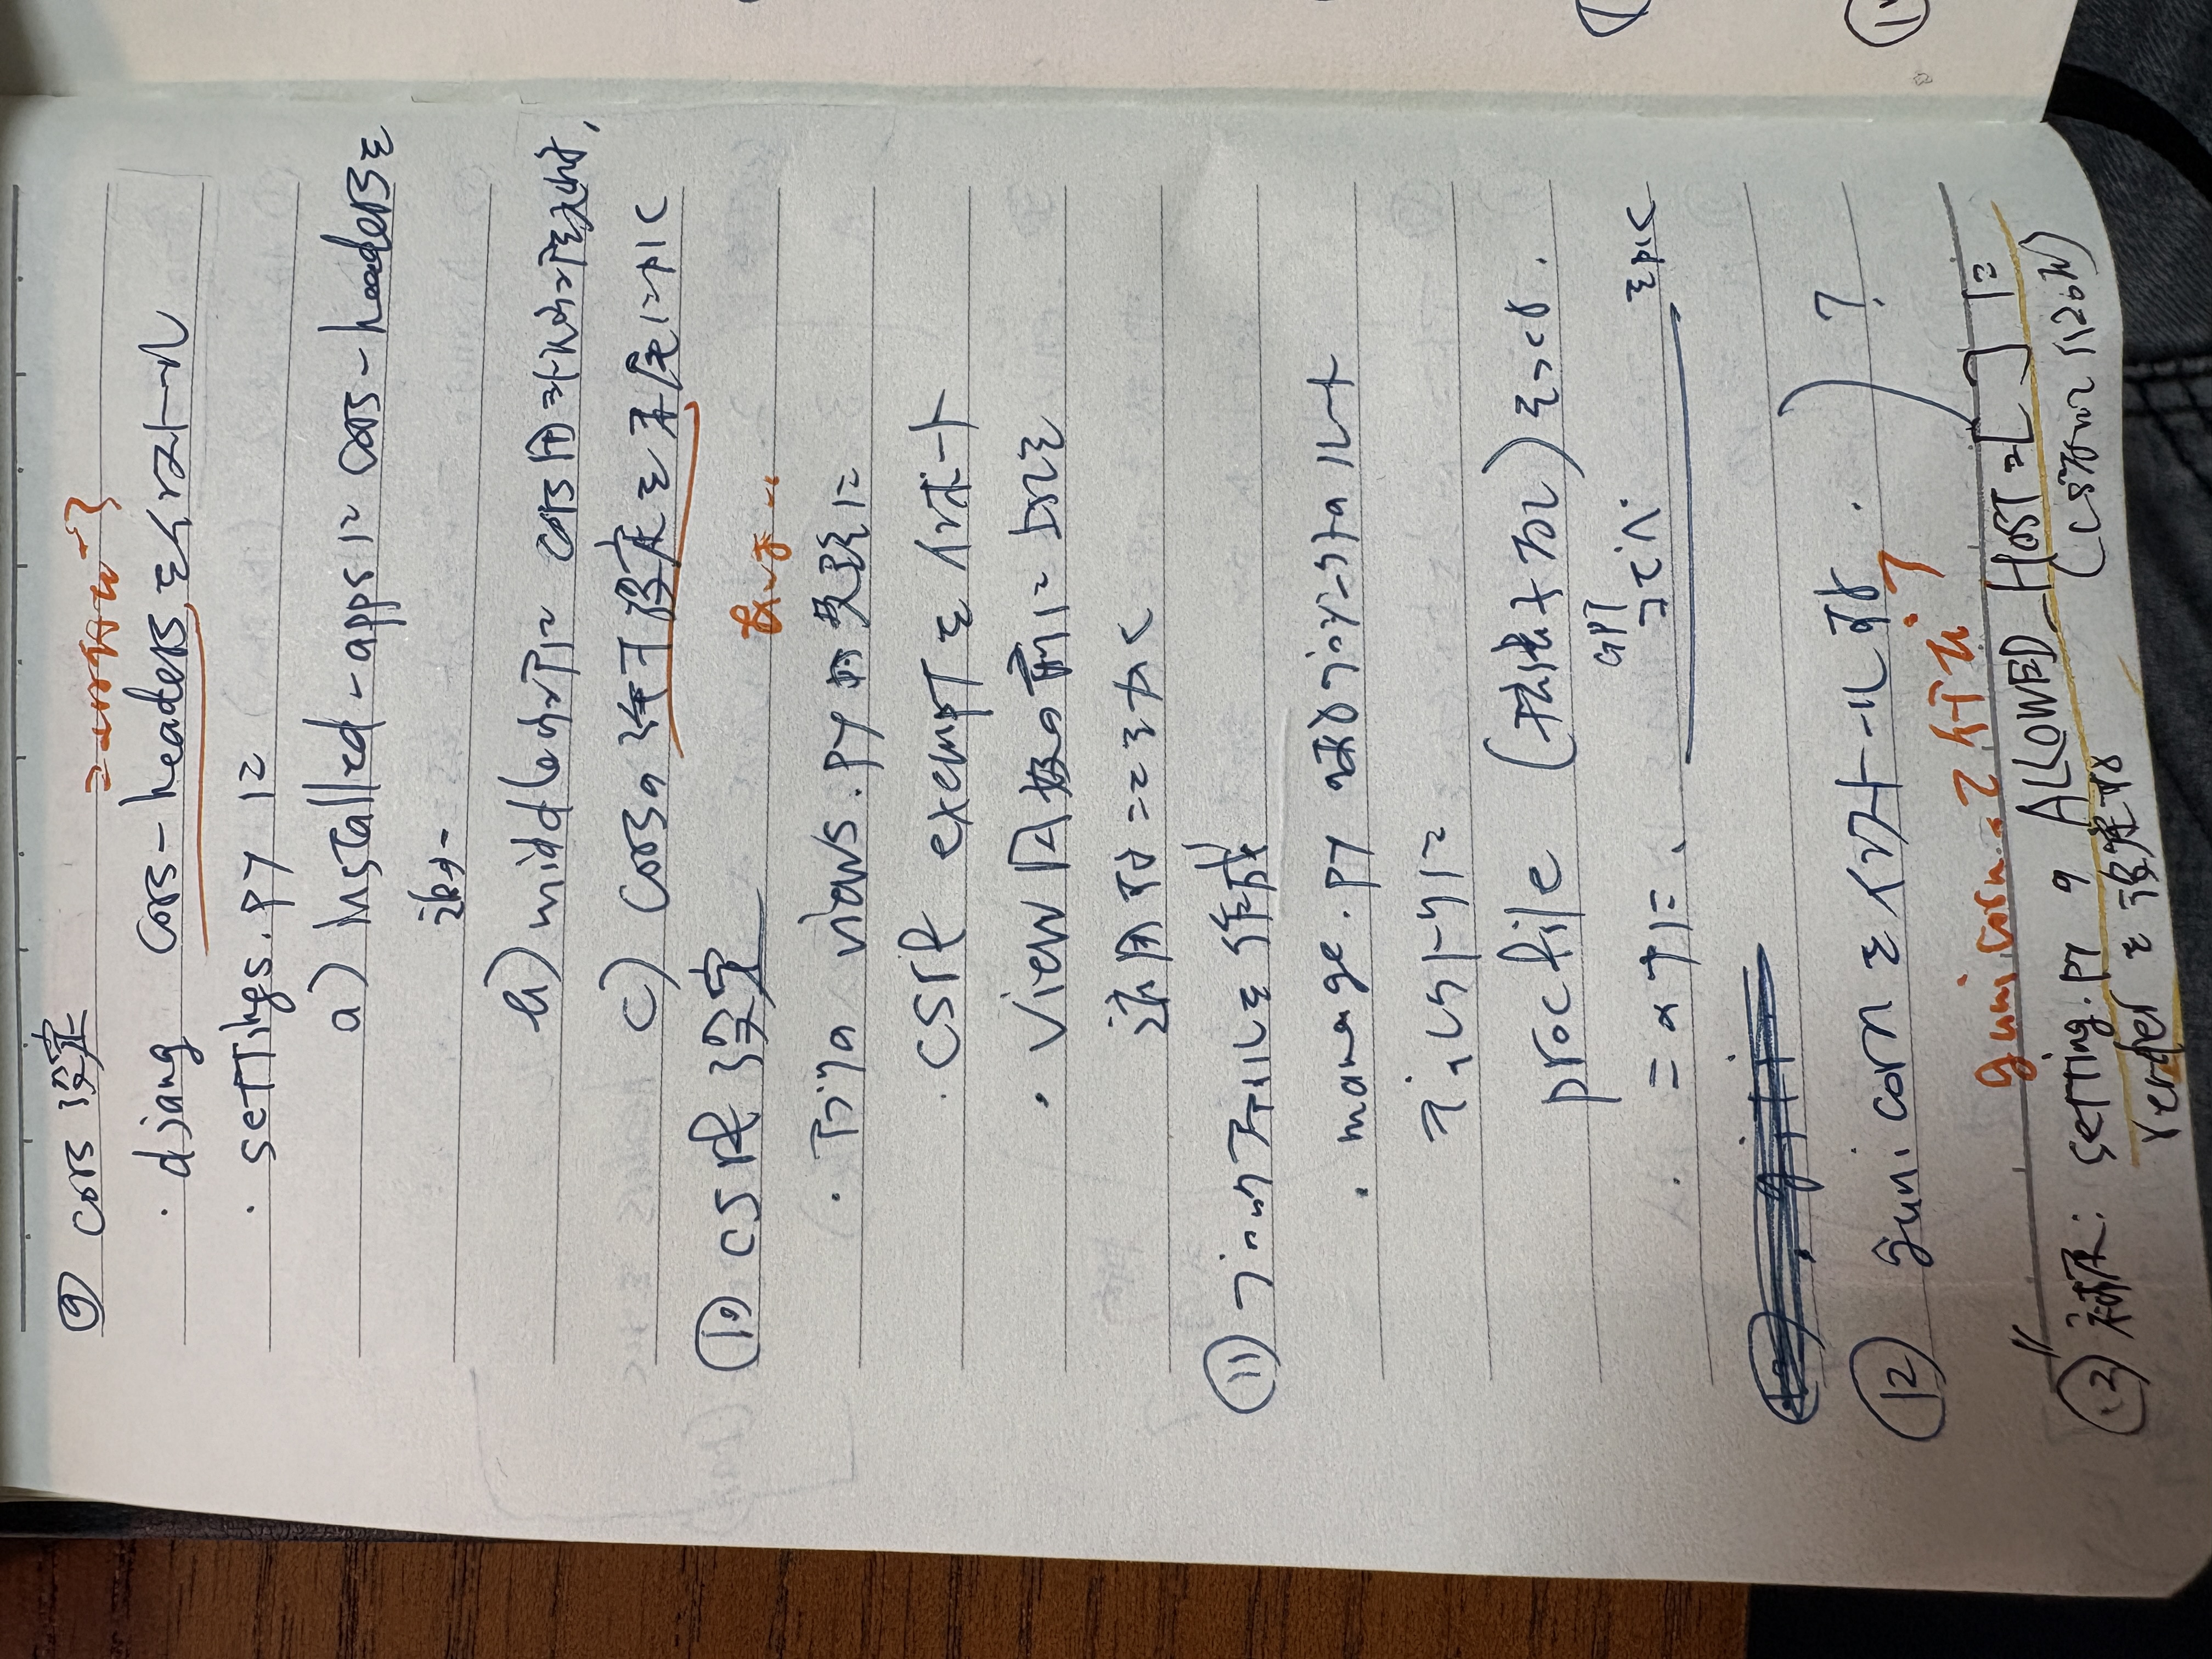 ⑨ cors 設定
・djang cors-headers をインストール
・settings.py に
a) installed-apps に cors-headers を
追加
b) middleウェアに cors用ミドルウェアを
c) corsの許可設定を末尾にかく
⑩ csrf 設定
・アプリの views.py の
・csrf exempt をインポート
・view 関数の前に 上記を
適用することをかく
⑪ プロックファイルを作成
・manage.py のあるプロジェクトの ルート
ディレクトリに
procfile (拡張子なし) をつくる.
GPT
・この中に、 コピペ をかく
⑫ gunicorn をインストールする. ?
gunicornって何だ?
補足: setting.py の ALLOWED_HOST=[ ] に
render を設定する